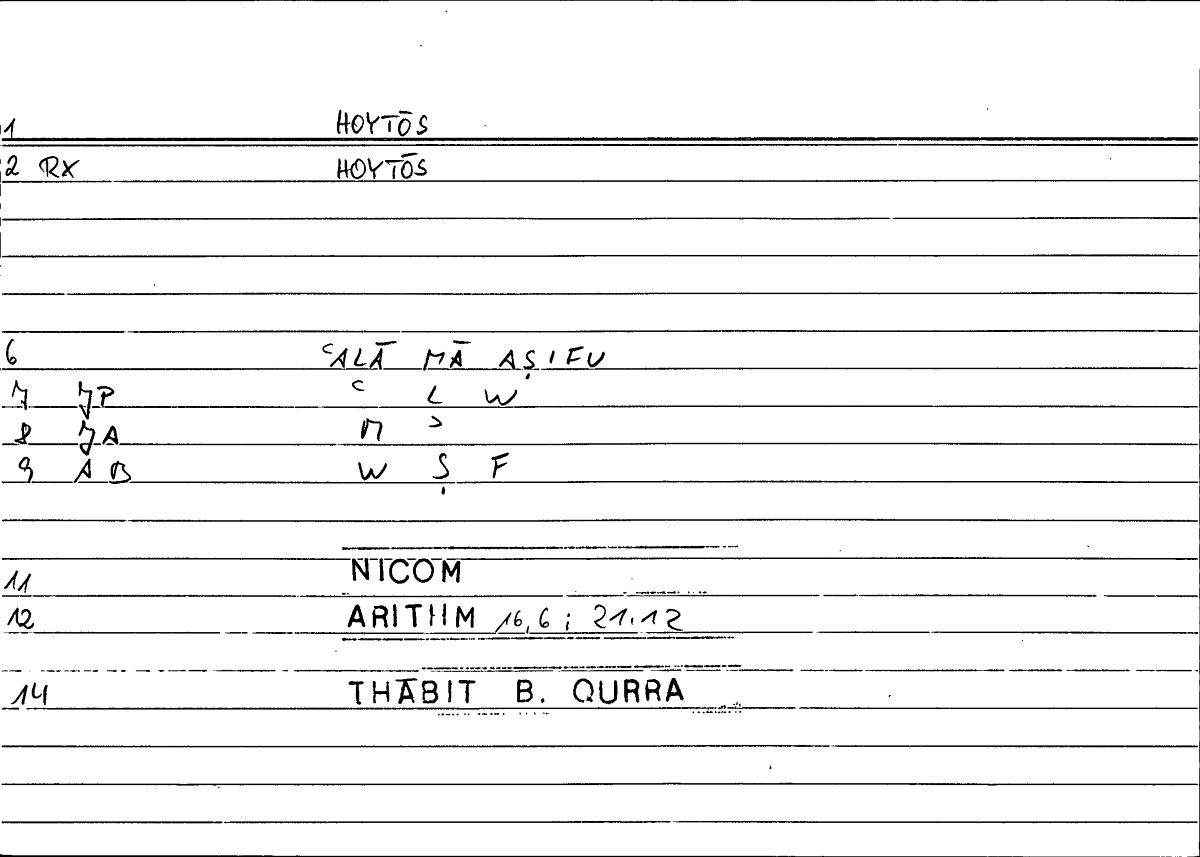 1 HOYTŌS
2 RX HOYTŌS
6 ʿALĀ MĀ AṢIFU
7 JP ʿ L W
8 JA M ʾ
9 AB W Ṣ F
11 NICOM
12 ARITHM 16,6 ; 21.12
14 THĀBIT B. QURRA